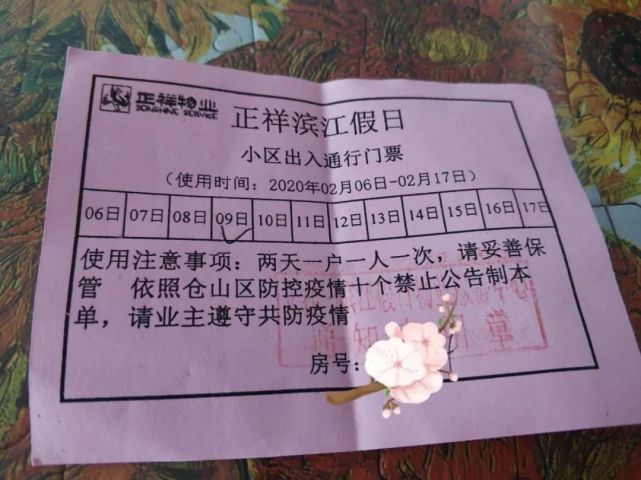 正祥物业
ZONSHINE SERVICE
正祥滨江假日
小区出入通行门票
（使用时间：2020年02月06日-02月17日）
06日 07日 08日 09日 10日 11日 12日 13日 14日 15日 16日 17日
使用注意事项：两天一户一人一次，请妥善保
管 依照仓山区防控疫情十个禁止公告制本
单，请业主遵守共防疫情
滨江假日物业服务中心
通知专用章
房号：